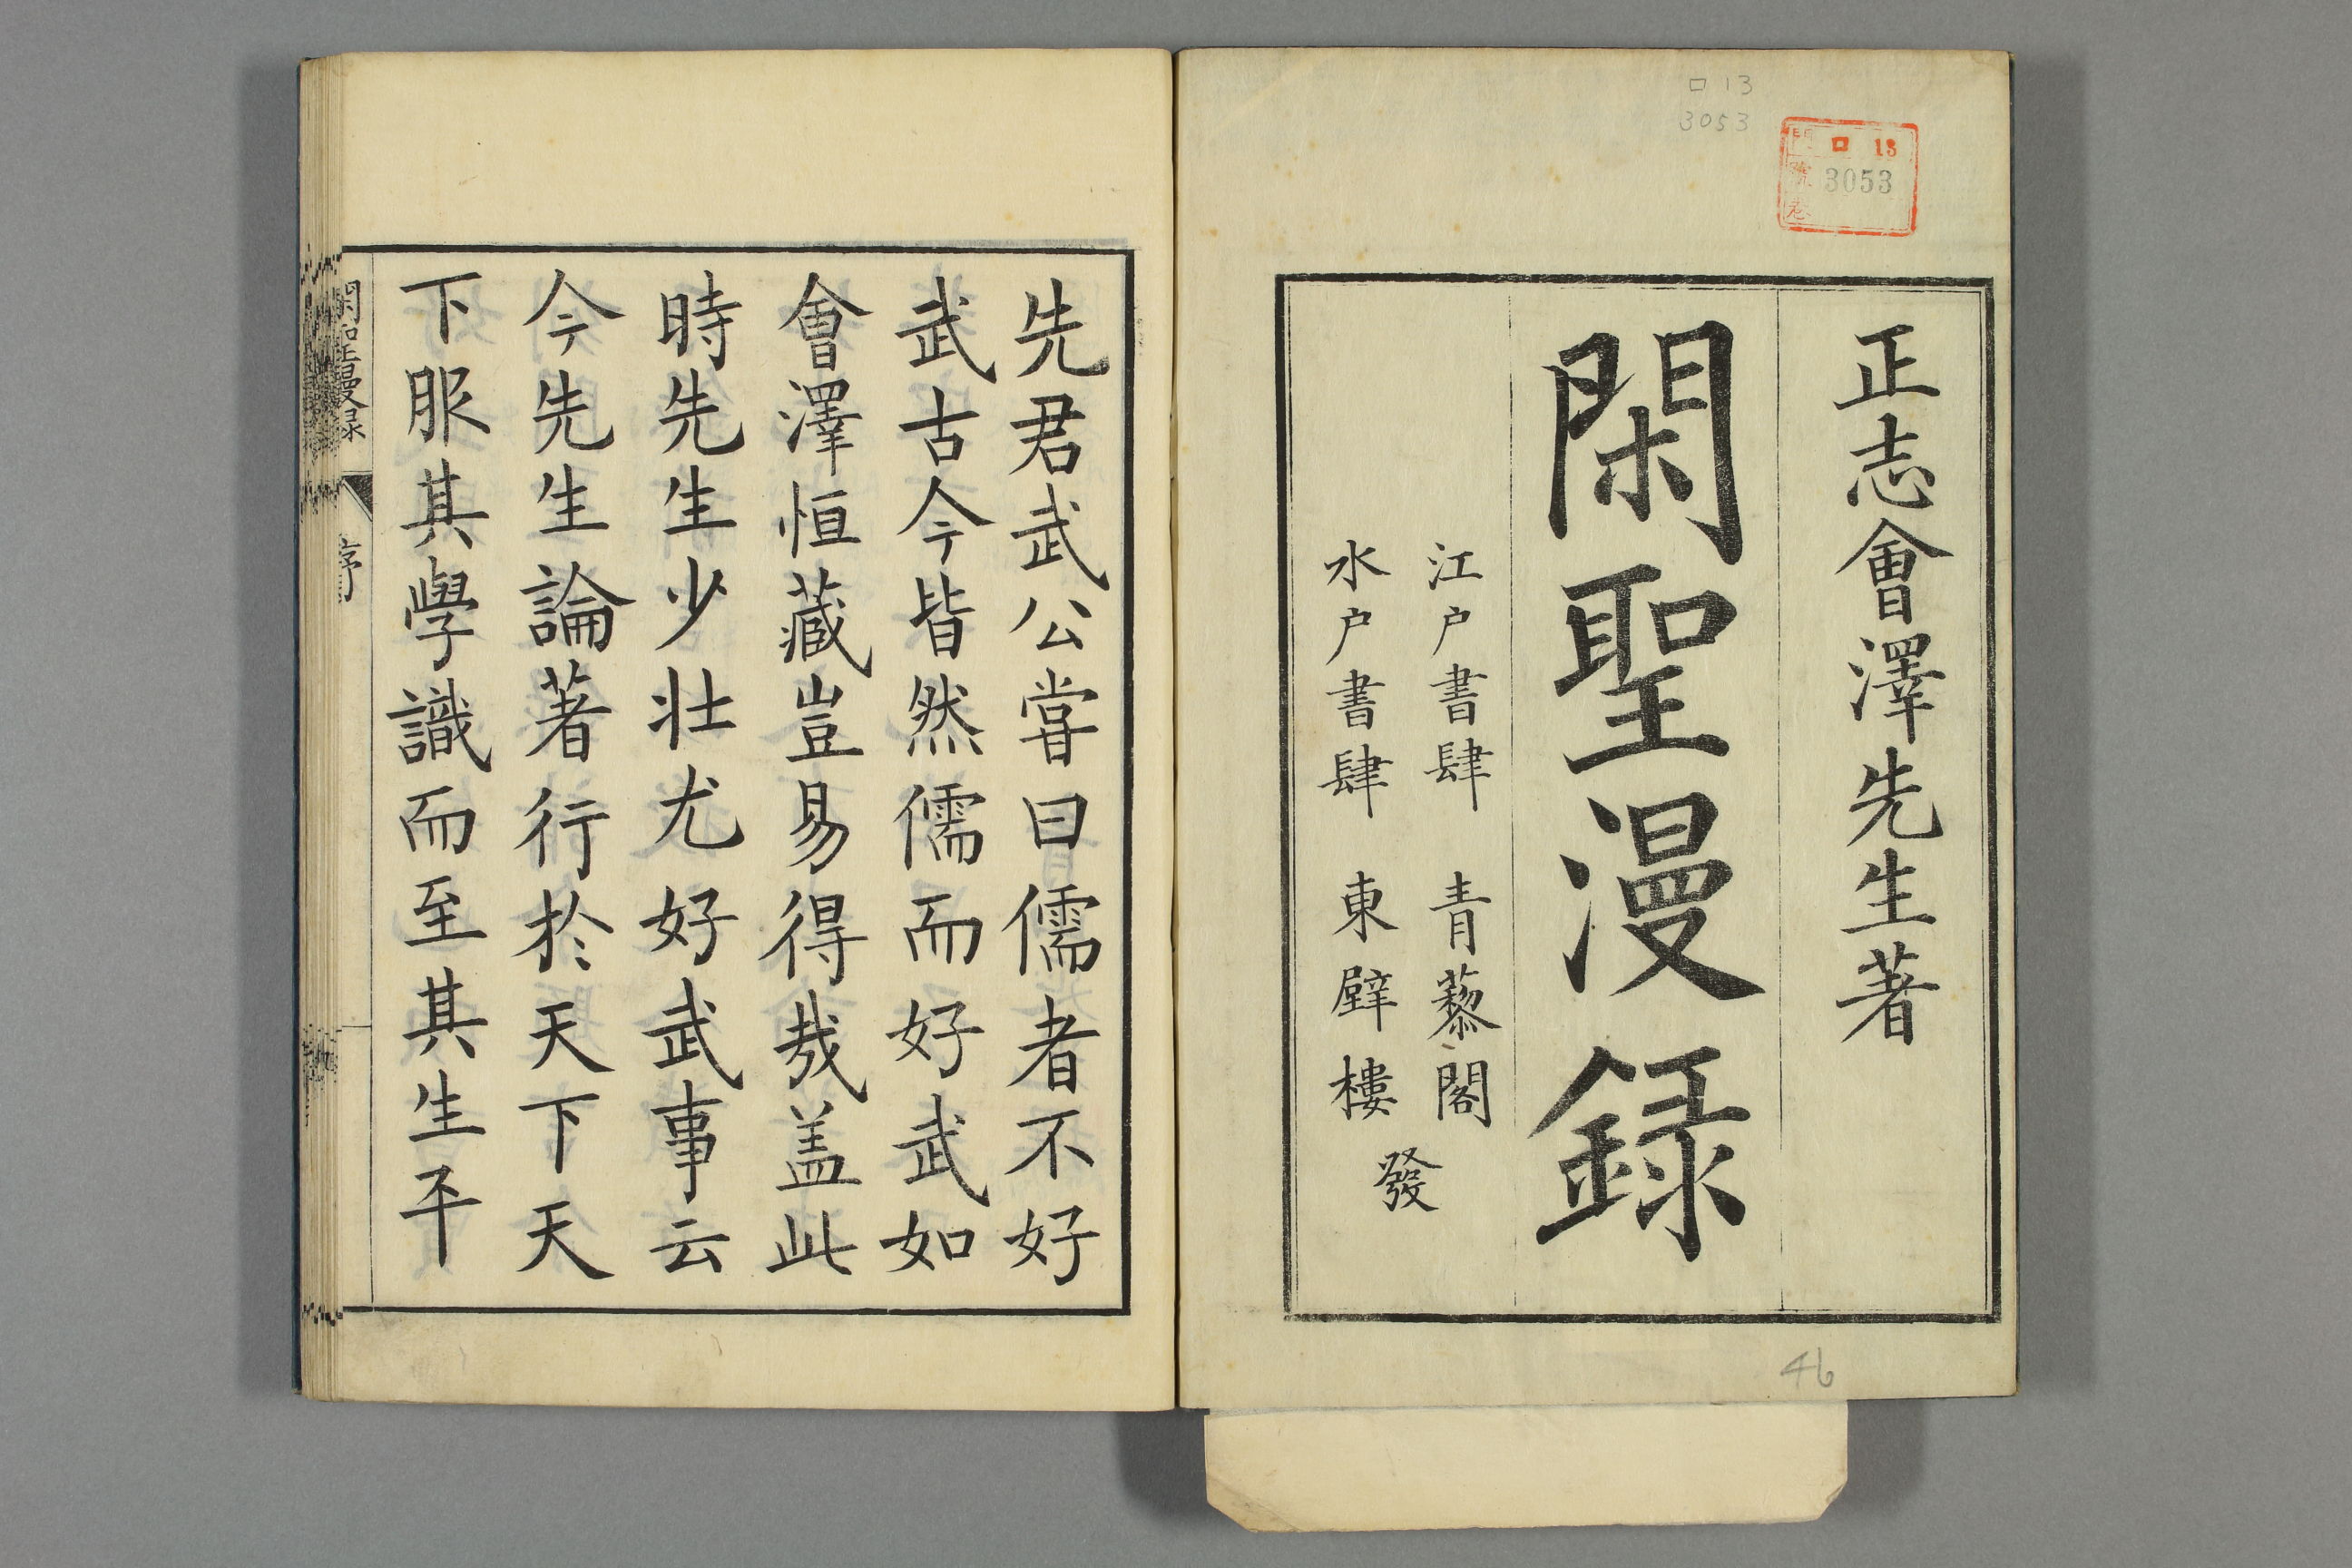 ロ13
3053
門 ロ 13
號 3053
卷
正志會澤先生著
閑聖漫録
江户書肆 青藜閣
水户書肆 東壁樓
發
46
先君武公嘗曰儒者不好
武古今皆然儒而好武如
會澤恒藏豈易得哉盖此
時先生少壮尤好武事云
今先生論著行於天下天
下服其學識而至其生平
閑聖漫録 序